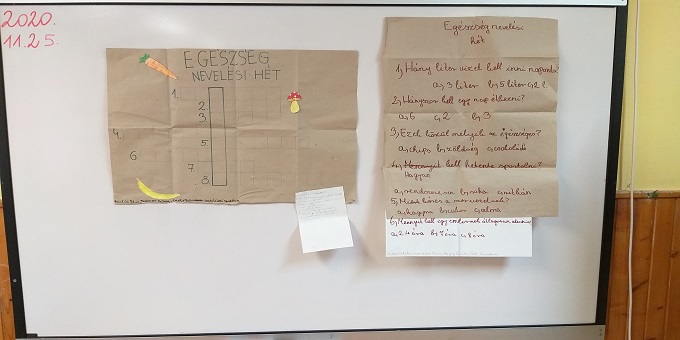 2020.
11.25.
EGÉSZSÉG
NEVELÉSI HÉT
1.
2.
3.
4.
5.
6.
7.
8.
Egészség nevelési
hét
1, Hány liter vizet kell inni naponta?
a, 3 liter b, 5 liter c, 2 l
2, Hányszor kell egy nap étkezni?
a, 6 c, 2 b, 3
3, Ezek közül melyik az egészséges?
a, chips b, zöldség c, csokoládé
4, Mennyit kell hetente sportolni?
Hogyan
a, rendszeresen b, soha c, ritkán
5,
a, hagyma b, cukor c, alma
6, Mennyit kell egy embernek átlagosan aludni?
a, 24 óra b, 7 óra c, 8 óra